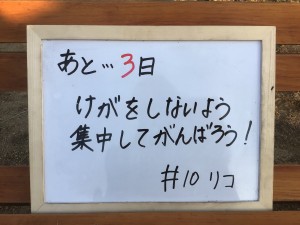 あと…3日
けがをしないよう
集中してがんばろう!
#10 リコ